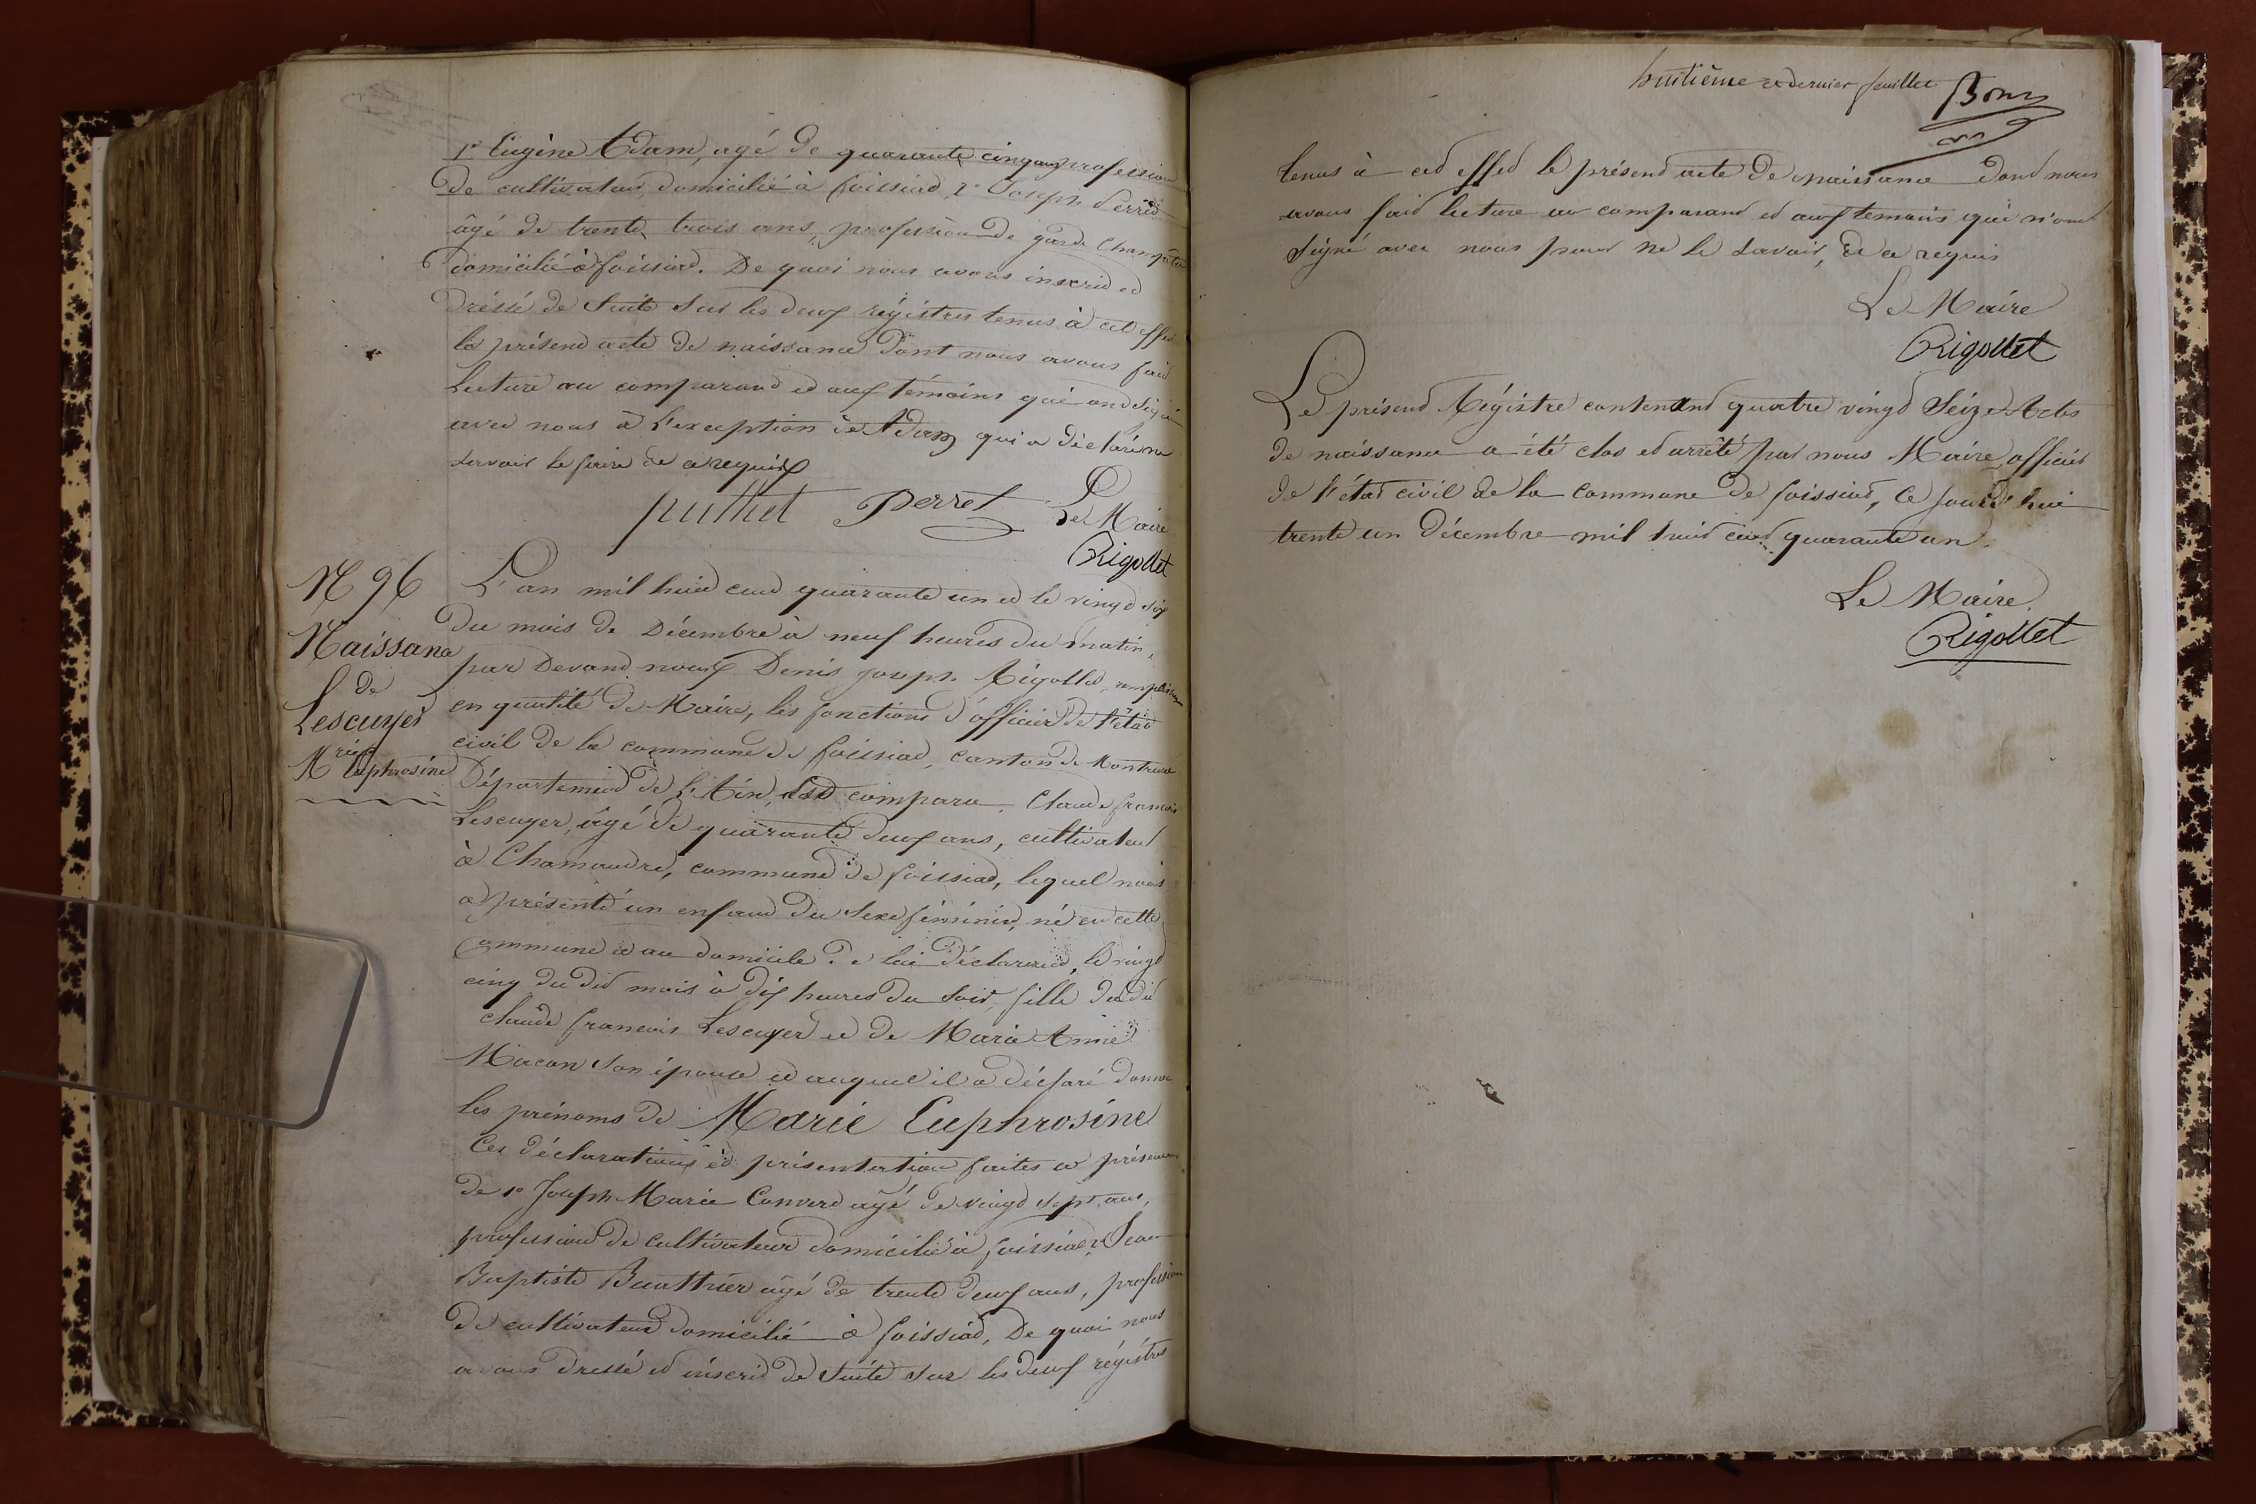 1º Eugène Adam, agé de quarante cinq ans profession
de cultivateur, domicilié à foissiat, 2º Joseph Perret
âgé de trente trois ans, profession de garde Champêtre
domicilié à foissiat. De quoi nous avons inscrit et
dréssé de Suite sur les deux régistres tenus à cet effet
le présent acte de naissance dont nous avons fait
Lecture au comparant et aux témoins qui ont signé
avec nous à l'exception de Adam qui a déclaré ne
savoir le faire de ce requis
puthet Perret Le Maire
Rigollet
N 96
Naissance
de
Lescuyer
Mrie
Euphrosine
L'an mil huit cent quarante un et le vingt six
du mois de Décembre à neuf heures du matin,
par Devant nous Denis joseph Rigollet, remplissant
en qualité de Maire, les fonctions d'officier de l'état
civil de la commune de foissiat, canton de Montrevel
Département de L'Ain, Est comparu Claude francois
Lescuyer, âgé de quarante deux ans, cultivateur
à Chamandre, commune de foissiat, lequel nous
a présenté un enfant du Sexe féminin, né en cette
Commune et au domicile de lui déclarant, le vingt
cinq du dit mois à dix heures du Soir, fille du dit
Claude francois Lescuyer et de Marie Anne
Macon son épouse et auquel il a déclaré donner
les prénoms de Marie Euphrosine
Ces déclarations et présentation faites en présence
de 1º Joseph Marie Convert agé de vingt sept ans,
profession de cultivateur domicilié à foissiat, 2º Jean
Baptiste Buatthier agé de trente deux ans, profession
de cultivateur domicilié à foissiat, De quoi nous
avons dressé et inscrit de Suite sur les deux régistres
huitième et dernier feuillet
tenus à cet effet le présent acte de naissance dont nous
avons fait lecture au comparant et aux temoins qui n'ont
Signé avec nous pour ne le savoir, de ce requis
Le Maire
Rigollet
Le présent Régistre contenant quatre vingt Seize Actes
de naissance a été clos et arrêté par nous Maire officier
de l'état civil de la Commune de foissiat, ce jourd'hui
trente un Décembre mil huit cent quarante un.
Le Maire
Rigollet